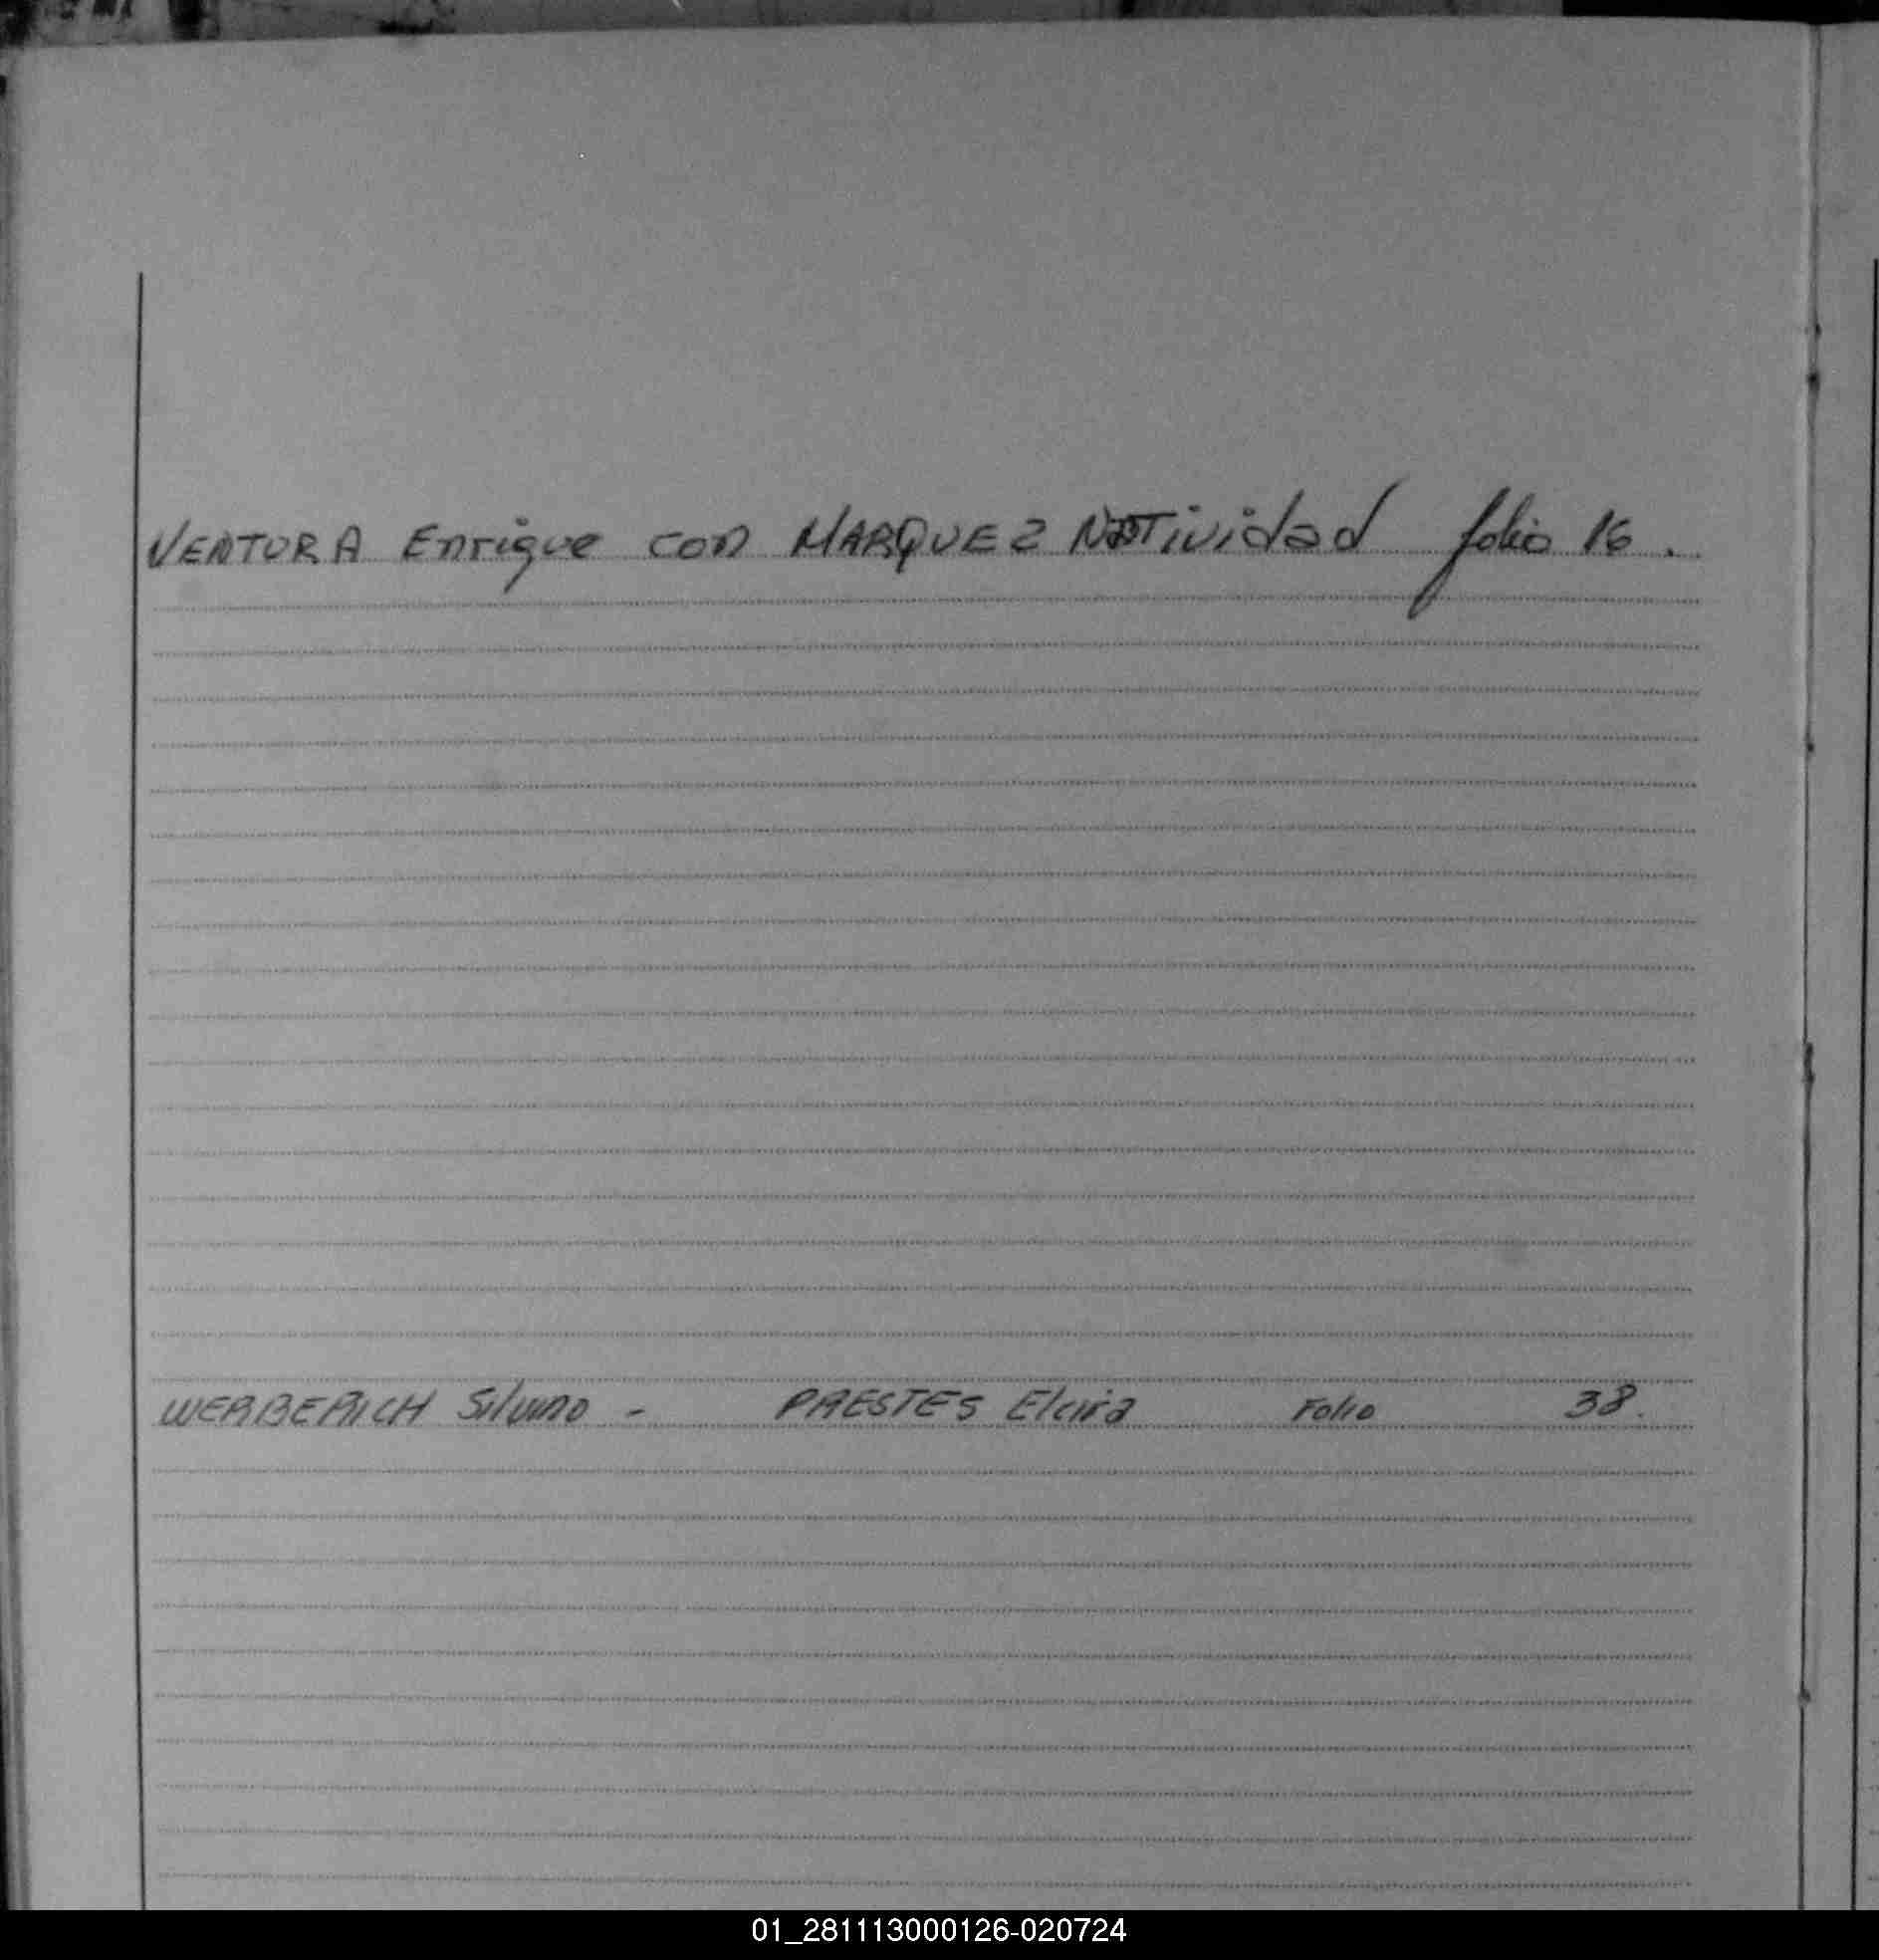 VENTURA Enrique con MARQUEZ NATividad folio 16.
WERBERICH Silvino - PRESTES Elcira Folio 38.
01_281113000126-020724